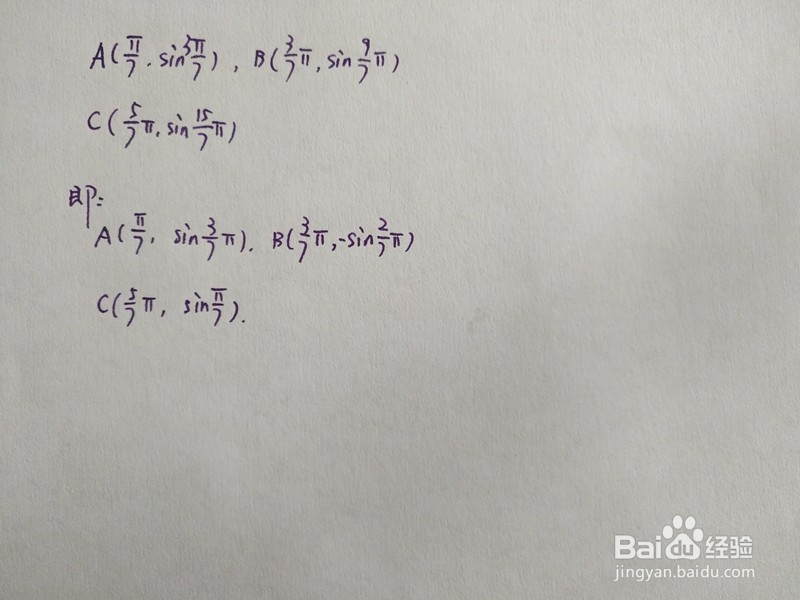 A(π/7, sin3π/7), B(3/7π, sin9/7π)
C(5/7π, sin15/7π)
即:
A(π/7, sin3/7π). B(3/7π, -sin2/7π)
C(5/7π, sinπ/7).
Baidu经验
jingyan.baidu.com